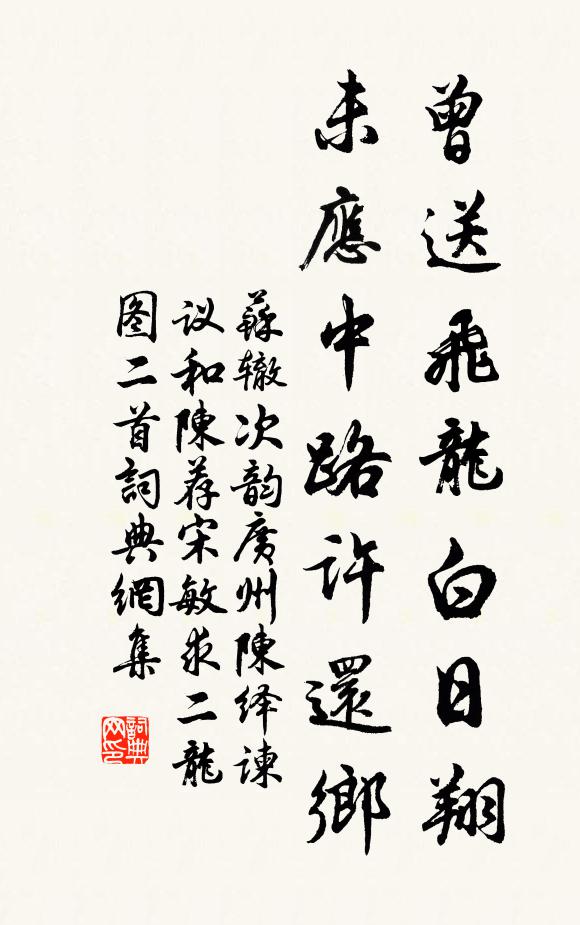 曾送飛龍白日翔
未應中路許還鄉
蘇辙次韵廣州陳绎谏
议和陳荐宋敏求二龍
图二首詞典網集
詞典网印